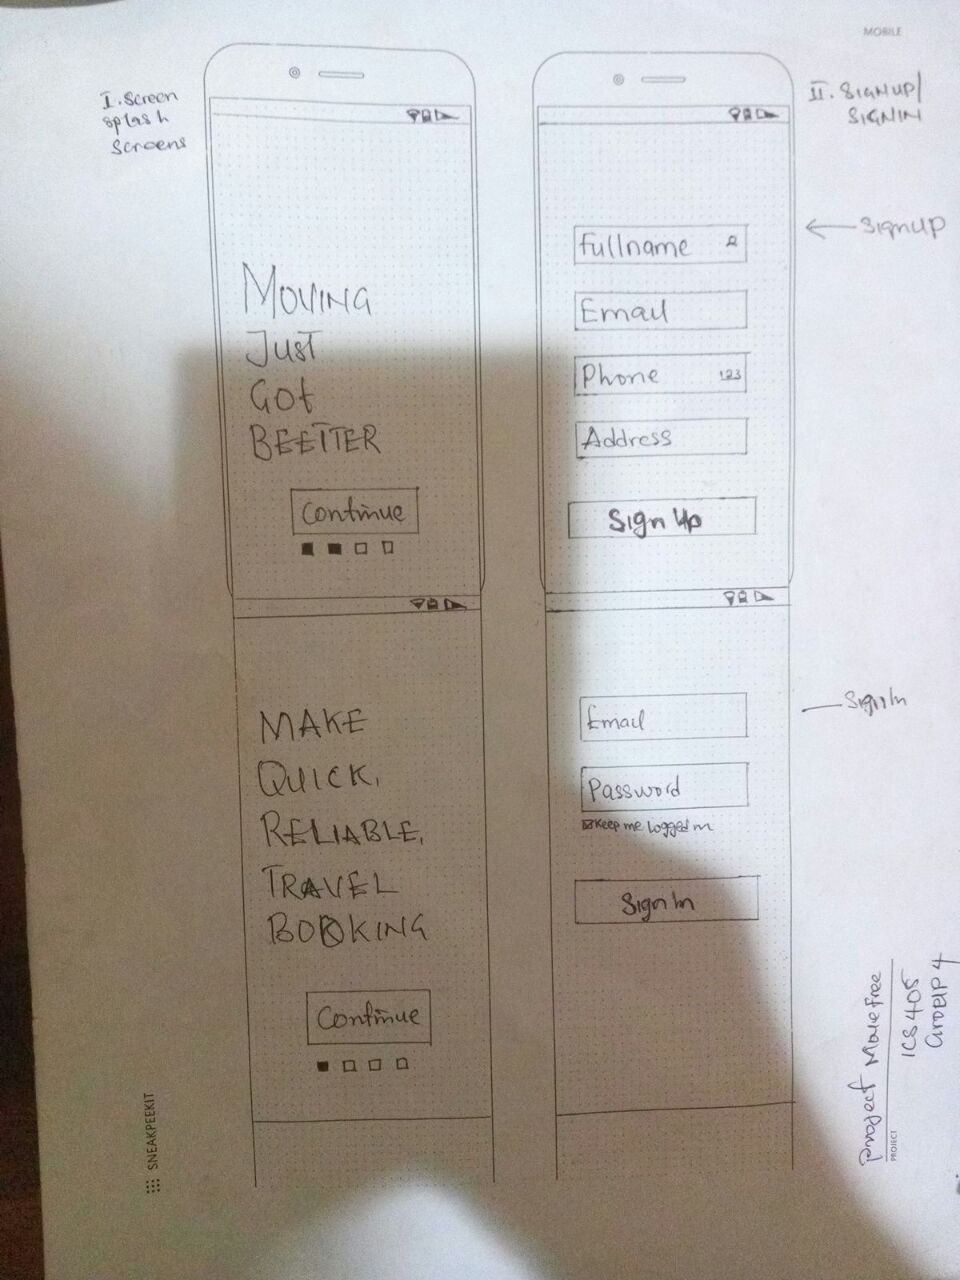 MOBILE
I. Screen
splash
screens
MOVING
JUST
GOt
BEETTER
Continue
MAKE
QUICK,
RELIABLE,
TRAVEL
BOOKING
Continue
II. SIGNUP/
SIGNIN
SignUP
Fullname
Email
Phone 123
Address
Sign Up
Sign In
Email
Password
Keep me logged in
Sign In
SNEAKPEEKIT
project MoveFree
PROJECT
ICS 405
GROUP 4